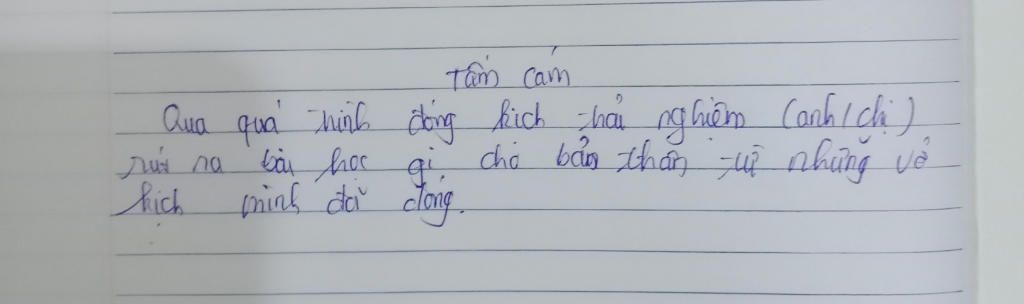 Tấm Cám
Qua quá trình đóng kịch trải nghiệm (anh/chị)
rút ra bài học gì cho bản thân từ những vở
kịch mình đã đóng.